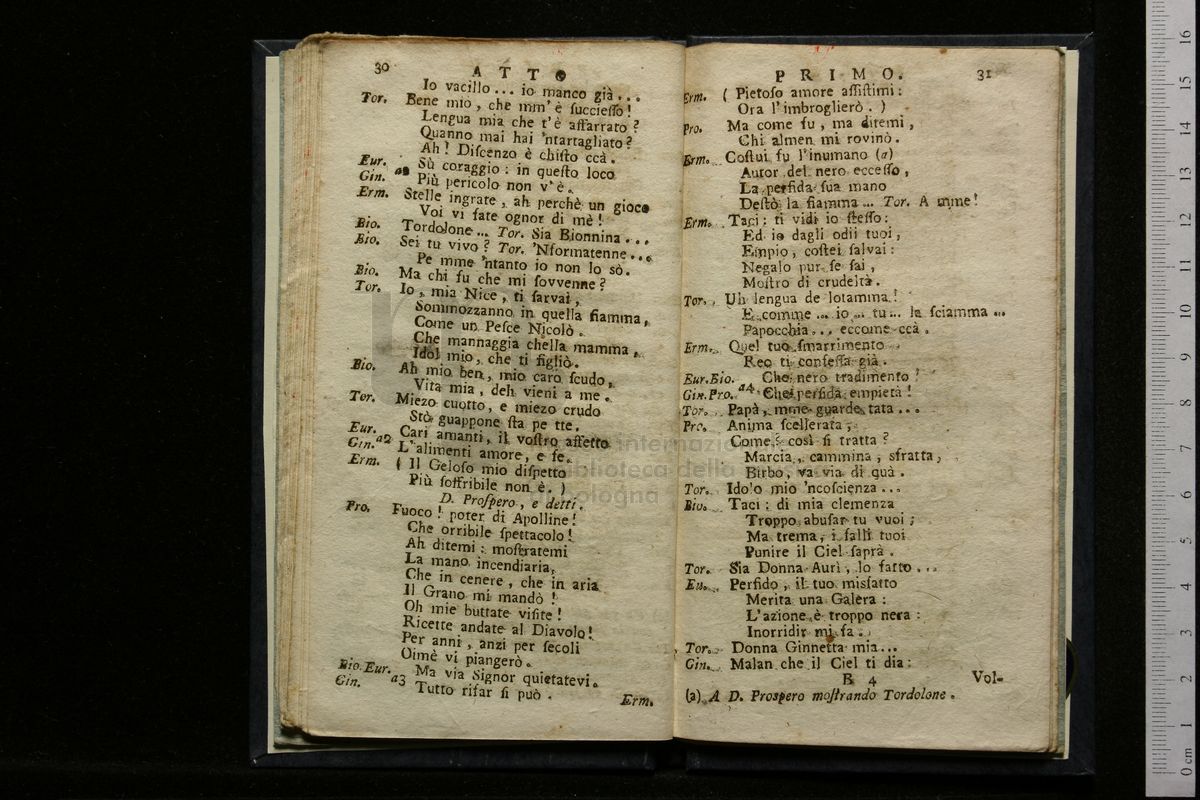 30 ATTO
Io vacillo... io manco già...
Tor. Bene mio, che mm'è succiesso!
Lengua mia che t'è affarrato?
Quanno mai hai 'ntartagliato?
Ah! Discenzo è chisto ccà.
Eur. Sù coraggio: in questo loco
Gin. a2 Più pericolo non v'è.
Erm. Stelle ingrate, ah perchè un gioco
Voi vi fate ognor di mè!
Bio. Tordolone... Tor. Sia Bionnina...
Bio. Sei tu vivo? Tor. 'Nformatenne...
Pe mme 'ntanto io non lo sò.
Bio. Ma chi fu che mi sovvenne?
Tor. Io, mia Nice, ti sarvai,
Sommozzanno in quella fiamma,
Come un Pesce Nicolò.
Che mannaggia chella mamma,
Idol mio, che ti figliò.
Bio. Ah mio ben, mio caro scudo,
Vita mia, deh vieni a me.
Tor. Miezo cuotto, e miezo crudo
Stò guappone sta pe tte.
Eur. Cari amanti, il vostro affetto
Gin. a2 L'alimenti amore, e fe.
Erm. ( Il Geloso mio dispetto
Più soffribile non è. )
D. Prospero, e detti.
Pro. Fuoco! poter di Apolline!
Che orribile spettacolo!
Ah ditemi: mostratemi
La mano incendiaria,
Che in cenere, che in aria
Il Grano mi mandò!
Oh mie buttate visite!
Ricette andate al Diavolo!
Per anni, anzi per secoli
Oimè vi piangerò.
Bio. Eur. Ma via Signor quietatevi.
Gin. a3 Tutto rifar si può.
Erm.
PRIMO. 31
Erm. ( Pietoso amore assistimi:
Ora l'imbroglierò. )
Pro. Ma come fu, ma ditemi,
Chi almen mi rovinò.
Erm. Costui fu l'inumano (a)
Autor del nero eccesso,
La perfida sua mano
Destò la fiamma... Tor. A mme!
Erm. Taci: ti vidi io stesso:
Ed io dagli odii tuoi,
Empio, costei salvai:
Negalo pur se sai,
Mostro di crudeltà.
Tor. Uh lengua de lotamma!
E comme... io... tu... la sciamma...
Papocchia... eccome ccà.
Erm. Quel tuo smarrimento
Reo ti confessa già.
Eur. Bio. Che nero tradimento!
Gin. Pro. a4 Che perfida empietà!
Tor. Papà, mme guarde tata...
Pro. Anima scellerata,
Come? così si tratta?
Marcia, cammina, sfratta,
Birbo, va via di quà.
Tor. Idolo mio 'ncoscienza...
Bio. Taci: di mia clemenza
Troppo abusar tu vuoi;
Ma trema, i falli tuoi
Punire il Ciel saprà.
Tor. Sia Donna Aurì, lo fatto...
Eu. Perfido, il tuo misfatto
Merita una Galera:
L'azione è troppo nera:
Inorridir mi fa.
Tor. Donna Ginnetta mia...
Gin. Malan che il Ciel ti dia:
B 4 Vol-
(a) A D. Prospero mostrando Tordolone.
internazionale
biblioteca della
bologna